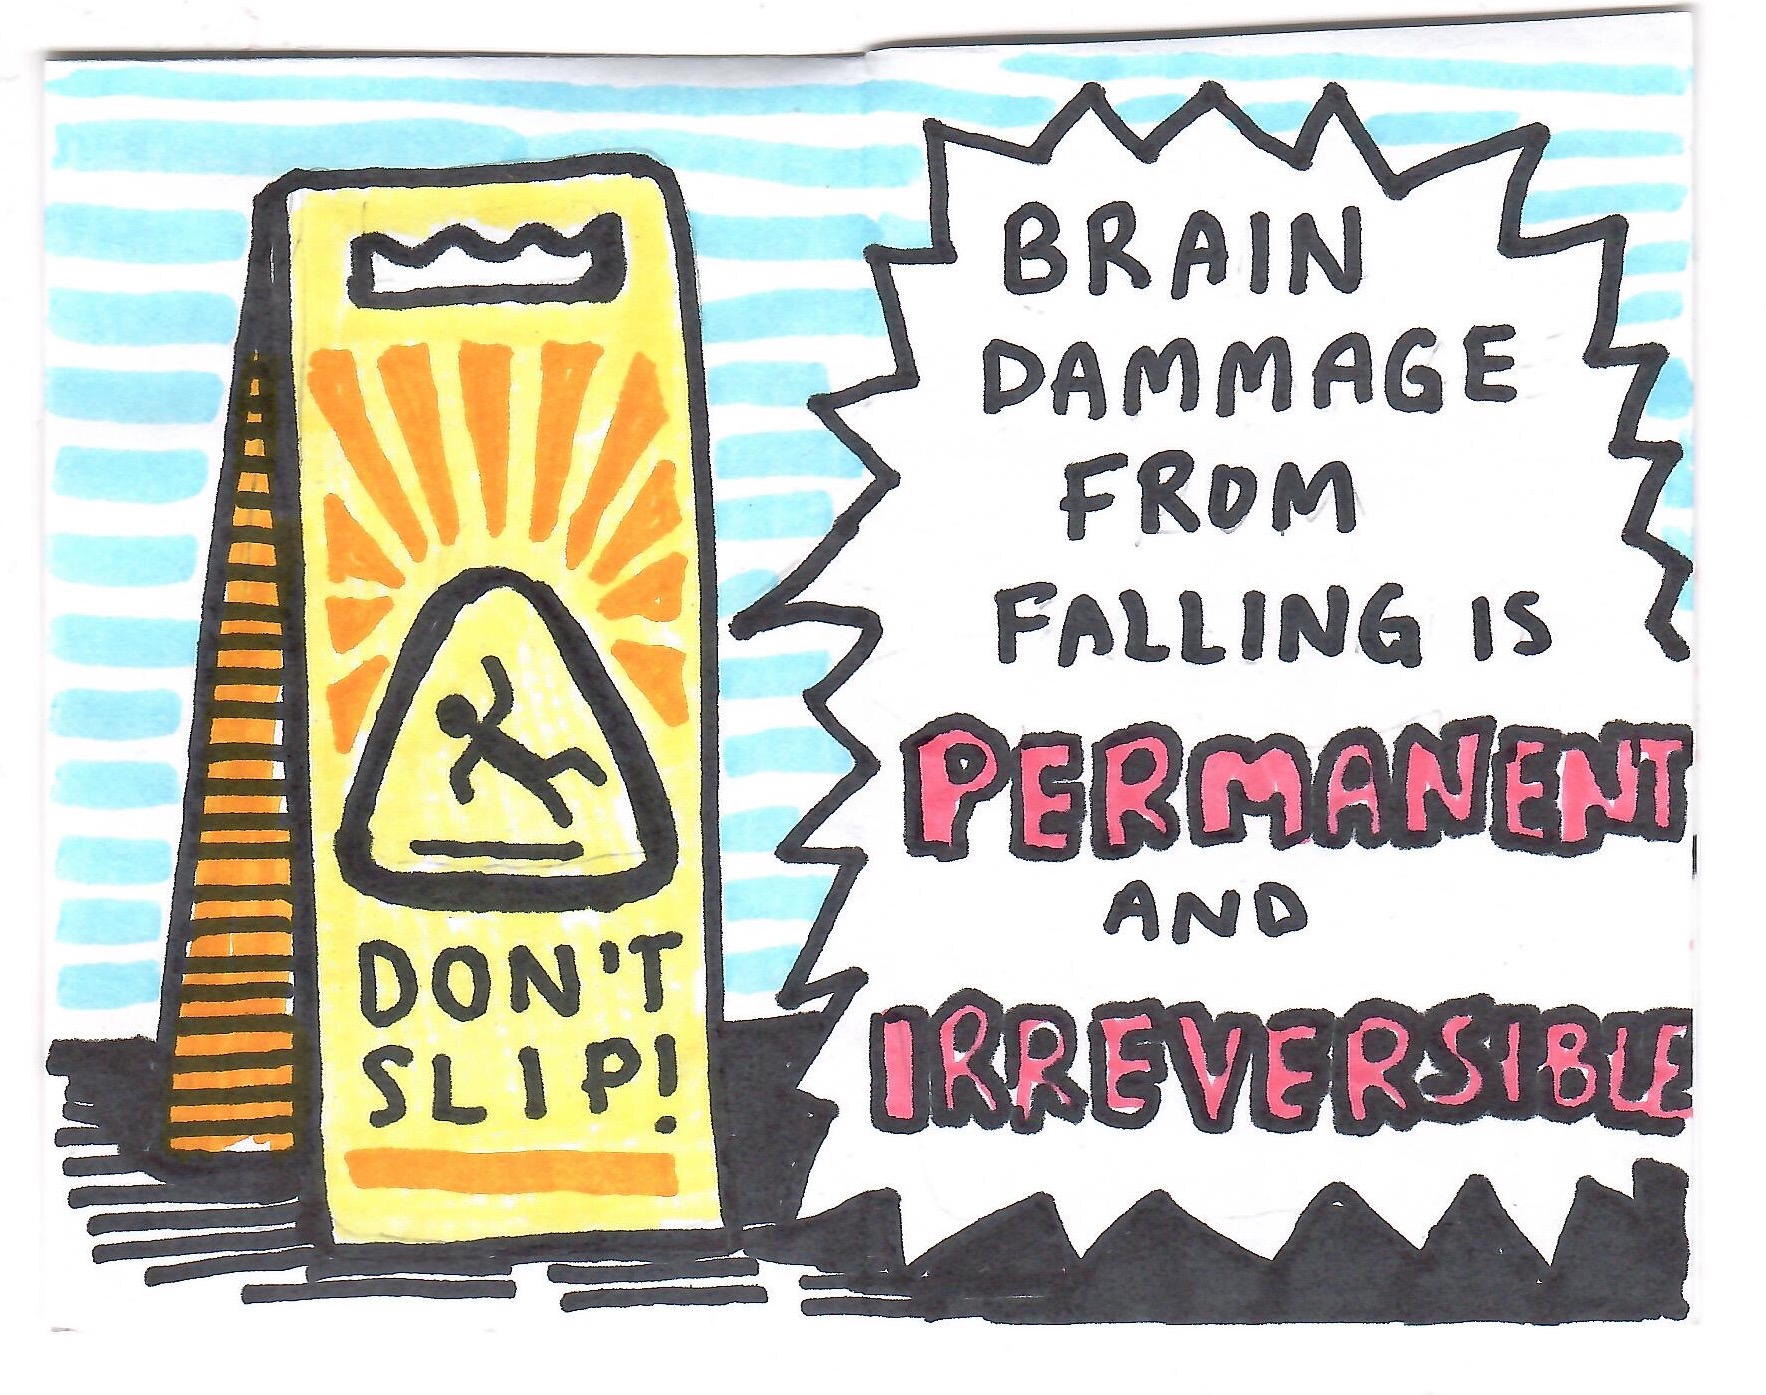 DON'T
SLIP!
BRAIN
DAMMAGE
FROM
FALLING IS
PERMANENT
AND
IRREVERSIBLE